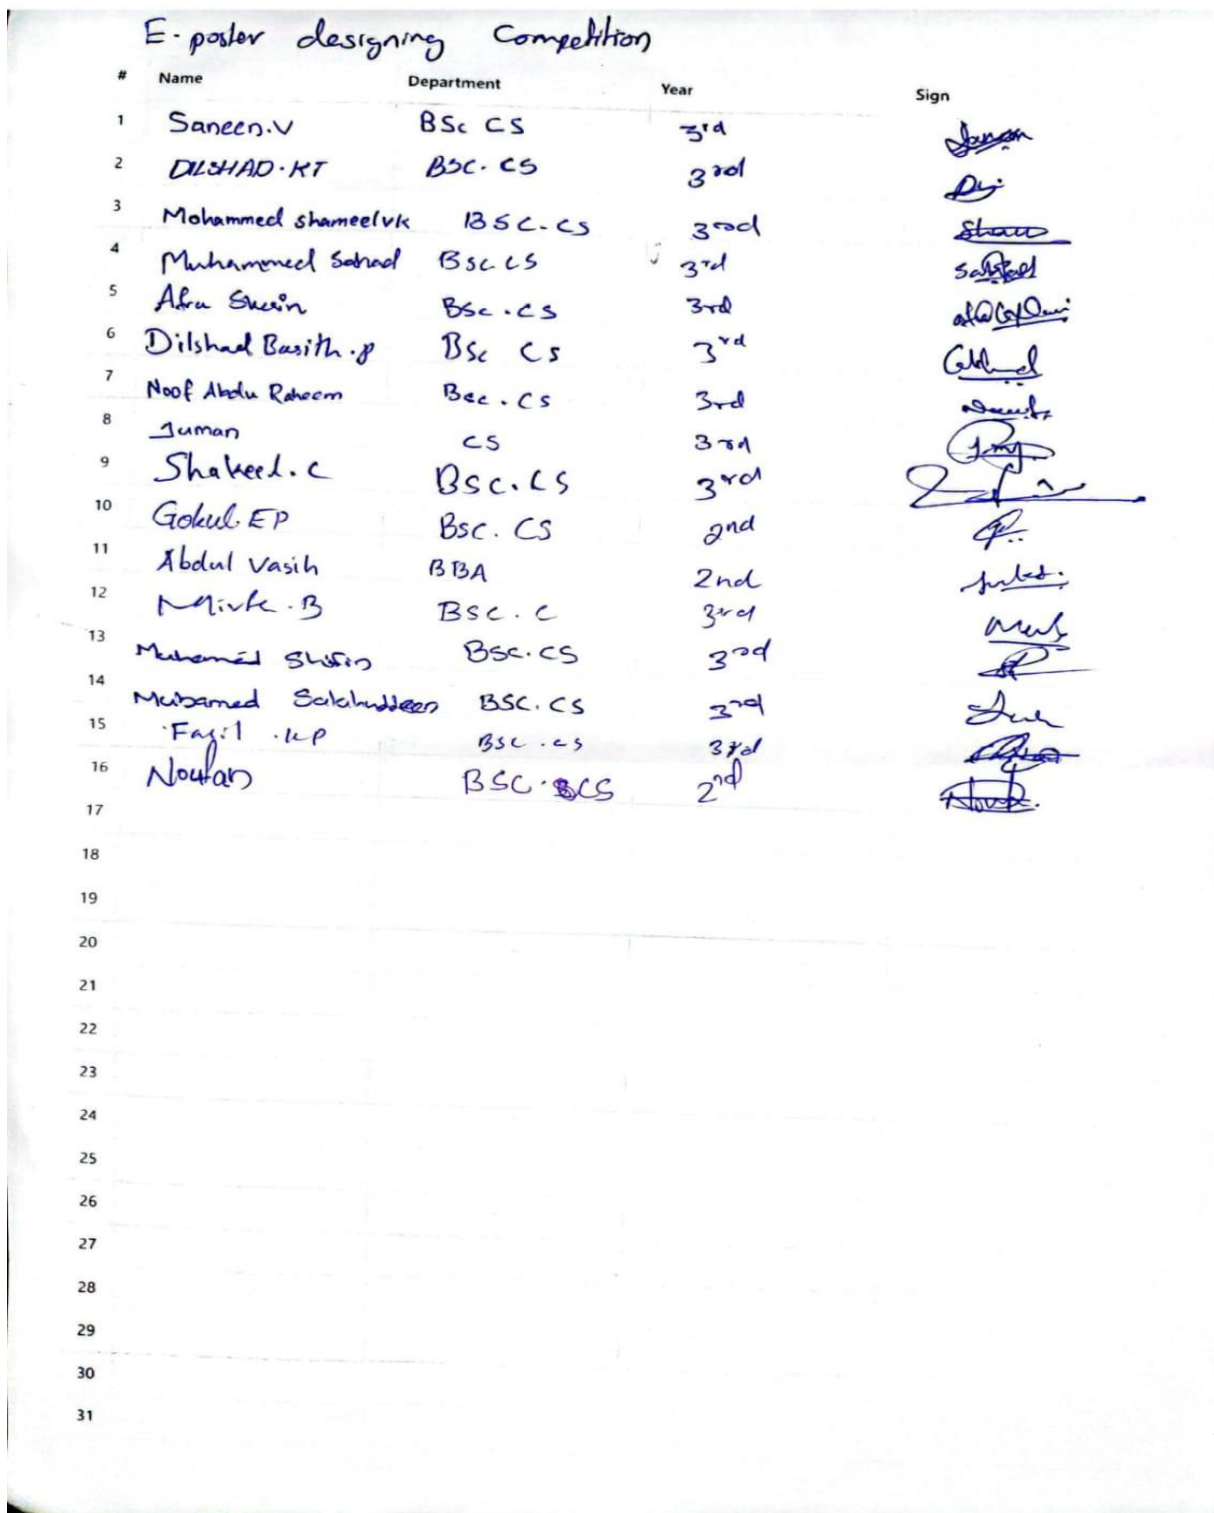 E-poster designing Competition
# Name Department Year Sign
1 Saneen.V BSc CS 3rd
2 DILSHAD.KT BSC.CS 3rd
3 Mohammed shameel vk BSC-CS 3rd
4 Muhammed Sahad BSc CS 3rd
5 BSc.CS 3rd
6 Dilshad Basith.p BSc CS 3rd
7 Noof Abdu Raheem Bsc.CS 3rd
8 Juman CS 3rd
9 Shakeel.C BSC.CS 3rd
10 Gokul.EP BSC.CS 2nd
11 Abdul Vasih BBA 2nd
12 BSC.C 3rd
13 BSC.CS 3rd
14 BSC.CS 3rd
15 Fazil.KP BSC.CS 3rd
16 Noufan BSC.CS 2nd
17
18
19
20
21
22
23
24
25
26
27
28
29
30
31